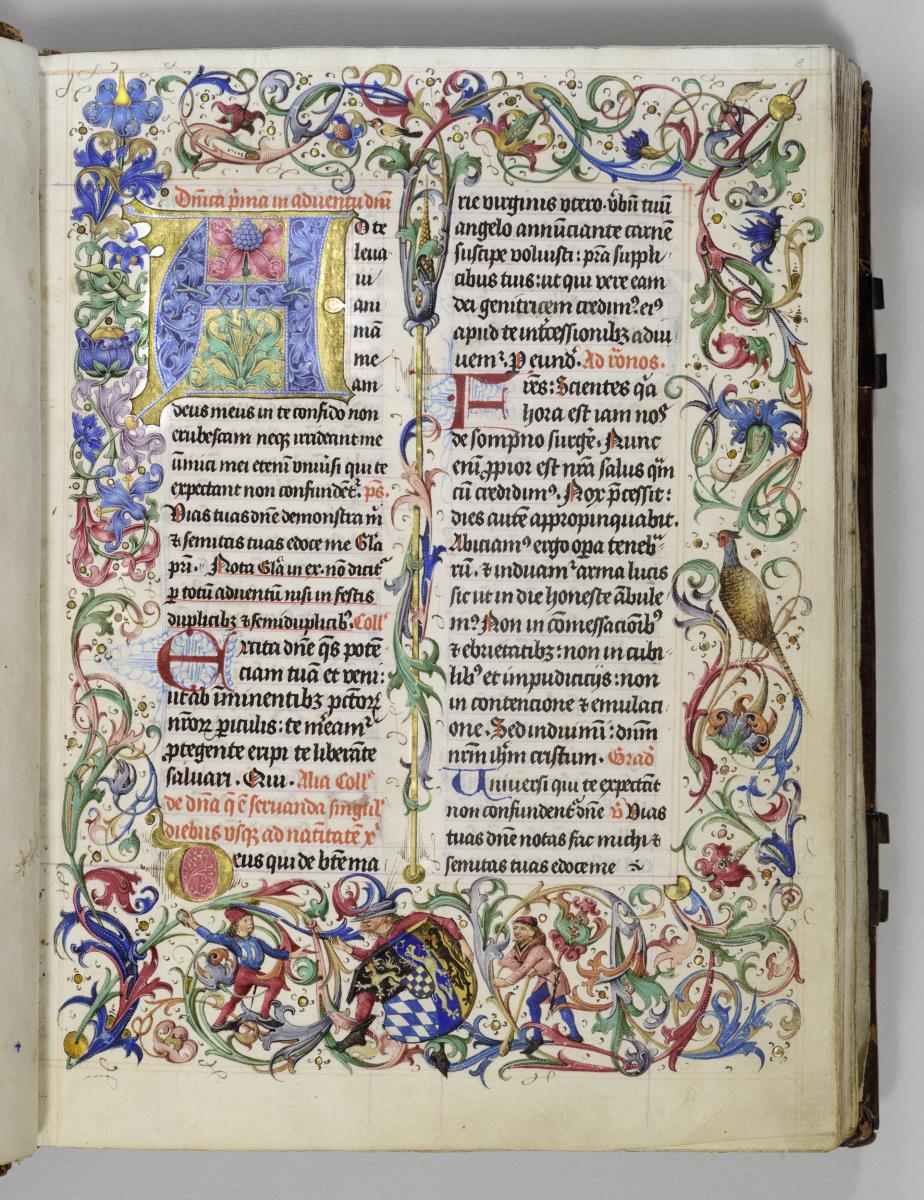 Dñica p̃ma in aduentu dñi
AD te
leua
ui
ani
mã
me
am
deus meus in te confido non
erubescam neqꝫ irrideant me
inimici mei etenī vniũsi qui te
expectant non confundent᷑. ps.
Vias tuas dñe demonstra m̃
⁊ semitas tuas edoce me Gl̃a
pr̃i. Nota Gl̃a in ex. nõ dicit᷑
ꝑ totũ aduentũ nisi in festis
duplicibꝫ ⁊ semiduplicibꝰ. Coll̃
Excita dñe q̃s potẽ
ciam tuã et veni:
ut ab ĩminentibꝫ pcc̃orꝝ
nr̃orꝝ ꝑiculis: te m̃eam᷑
ꝓtegente eripi te liberãte
saluari. Qui. Alia Coll̃
de dñã q̃ ẽ seruanda singul̃
diebus vsqꝫ ad natiũtatẽ xꝰ
Deus qui de btẽ ma
rie virginis vtero. vb̃ũ tuũ
angelo annũciante carnẽ
suscipe voluisti: pr̃a suppli
cibus tuis: ut qui vere eam
dei genitricem credimꝰ. eiꝰ
apud te int̃cessionibꝫ adiu
uem᷑. P eund̃. Ad rõnos.
Fr̃es: Scientes q̃a
hora est iam nos
de sompno surg̃e. Nunc
enĩ ꝓpior est nr̃a salus q̃m
cũ credidimꝰ. Nox p̃cessit:
dies autẽ appropinquabit.
Abiciamꝰ ergo oꝑa teneb̃
rũ. ⁊ induam᷑ arma lucis
sic ut in die honeste ãbule
mꝰ. Non in comessacõibꝰ
⁊ ebrietatibꝫ: non in cubi
libꝰ et impudicicijs: non
in contencione ⁊ emulaci
one. Sed induimĩ: dñm
nr̃m ih̃m cristum. Grad̃
Uniuersi qui te expectãt
non confundent᷑ dñe ℣ Vias
tuas dñe notas fac michi ⁊
semitas tuas edoce me